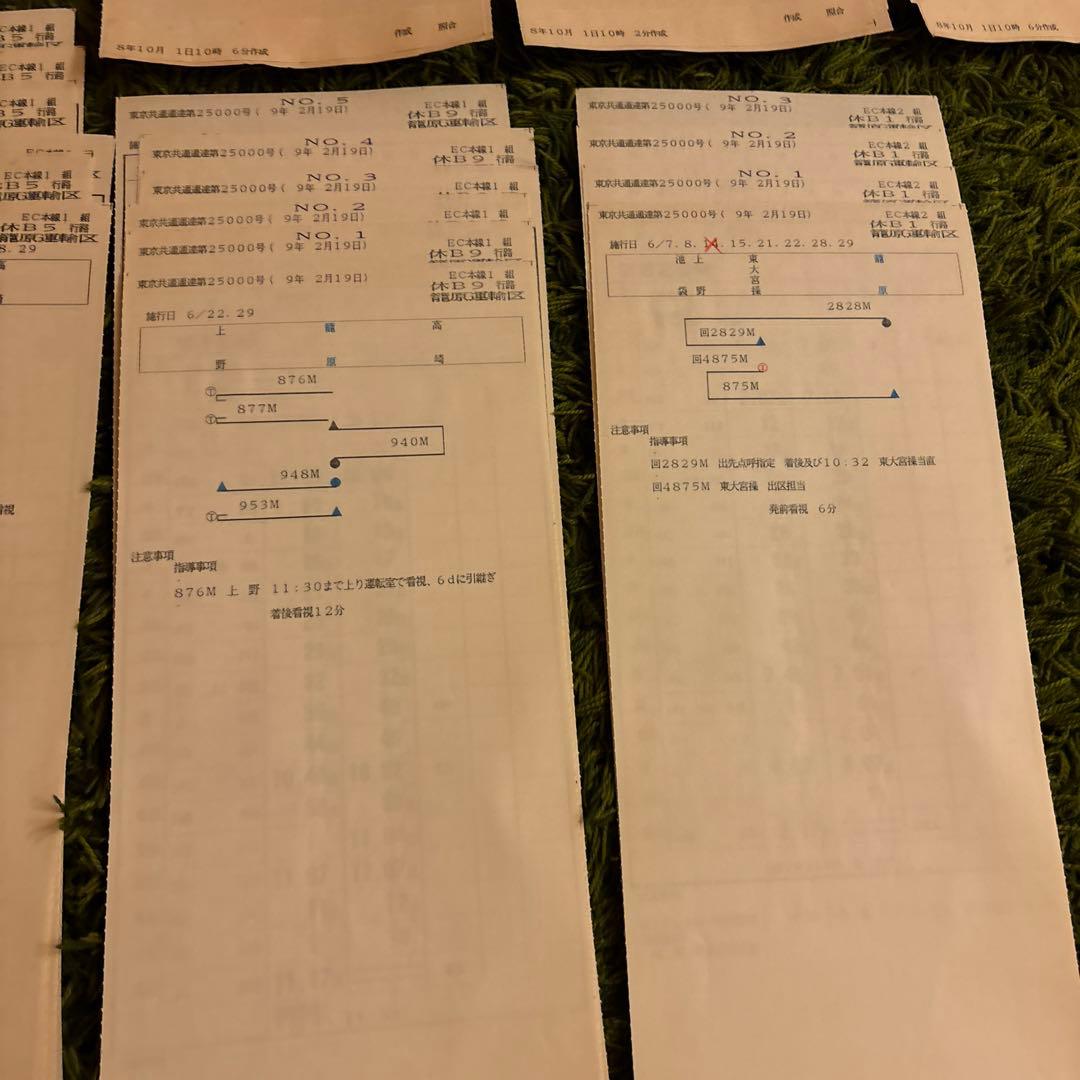 作成 照合
8年10月 1日10時 6分作成
作成 照合
8年10月 1日10時 2分作成
8年10月 1日10時 6分作成
EC本線1 組
B5 行路
B5 行路
EC本線1 組
B5 行路
籠原運輸区
EC本線1 組
B5 行路
籠原運輸区
EC本線1 組
休B5 行路
籠原運輸区
8. 29
NO. 5
東京共通通達第25000号( 9年 2月19日)
EC本線1 組
休B9 行路
籠原運輸区
NO. 4
東京共通通達第25000号( 9年 2月19日)
EC本線1 組
休B9 行路
NO. 3
東京共通通達第25000号( 9年 2月19日)
EC本線1 組
NO. 2
東京共通通達第25000号( 9年 2月19日)
EC本線1 組
NO. 1
東京共通通達第25000号( 9年 2月19日)
EC本線1 組
休B9 行路
東京共通通達第25000号( 9年 2月19日)
EC本線1 組
休B9 行路
籠原運輸区
施行日 6/22. 29
上野 籠原 高崎
876M
877M
940M
948M
953M
注意事項
指導事項
876M 上 野 11:30まで上り運転室で看視、6dに引継ぎ
着後看視12分
NO. 3
東京共通通達第25000号( 9年 2月19日)
EC本線2 組
休B1 行路
籠原運輸区
NO. 2
東京共通通達第25000号( 9年 2月19日)
EC本線2 組
休B1 行路
籠原運輸区
NO. 1
東京共通通達第25000号( 9年 2月19日)
EC本線2 組
休B1 行路
籠原運輸区
東京共通通達第25000号( 9年 2月19日)
EC本線2 組
休B1 行路
籠原運輸区
施行日 6/7. 8. 15. 21. 22. 28. 29
池袋 上野 東大宮操 籠原
2828M
回2829M
回4875M
875M
注意事項
指導事項
回2829M 出先点呼指定 着後及び10:32 東大宮操当直
回4875M 東大宮操 出区担当
発前看視 6分